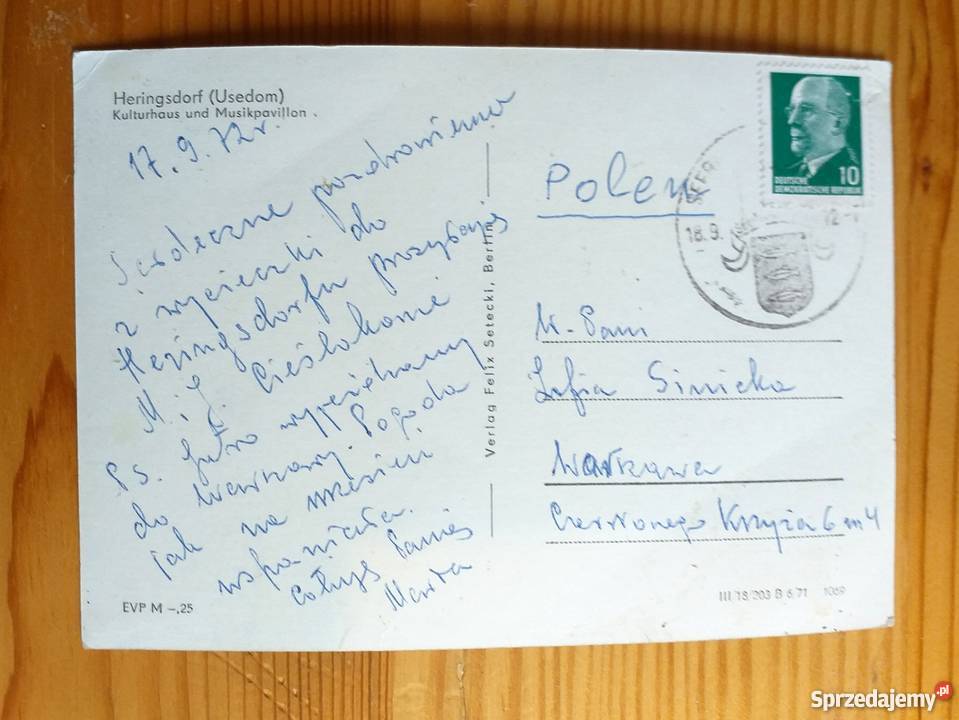 Heringsdorf (Usedom)
Kulturhaus und Musikpavillon
17.9.72r.
Serdeczne pozdrowienia
z wycieczki do
Heringsdorfu przesyłają
M. i J. Cieślakowie
P.S. Jutro wyjeżdżamy
do Warszawy. Pogoda
jak na wrzesień
wspaniała.
Całuję Panią
Marta
EVP M –,25
Verlag Felix Setecki, Berlin
DEUTSCHE
DEMOKRATISCHE REPUBLIK
10
SEE
18.9.
12-1
Polen
W-Pani
Zofia Sinicka
Warszawa
Czerwonego Krzyża 6 m 4
III/18/203 B 6/71 1069
Sprzedajemy.pl